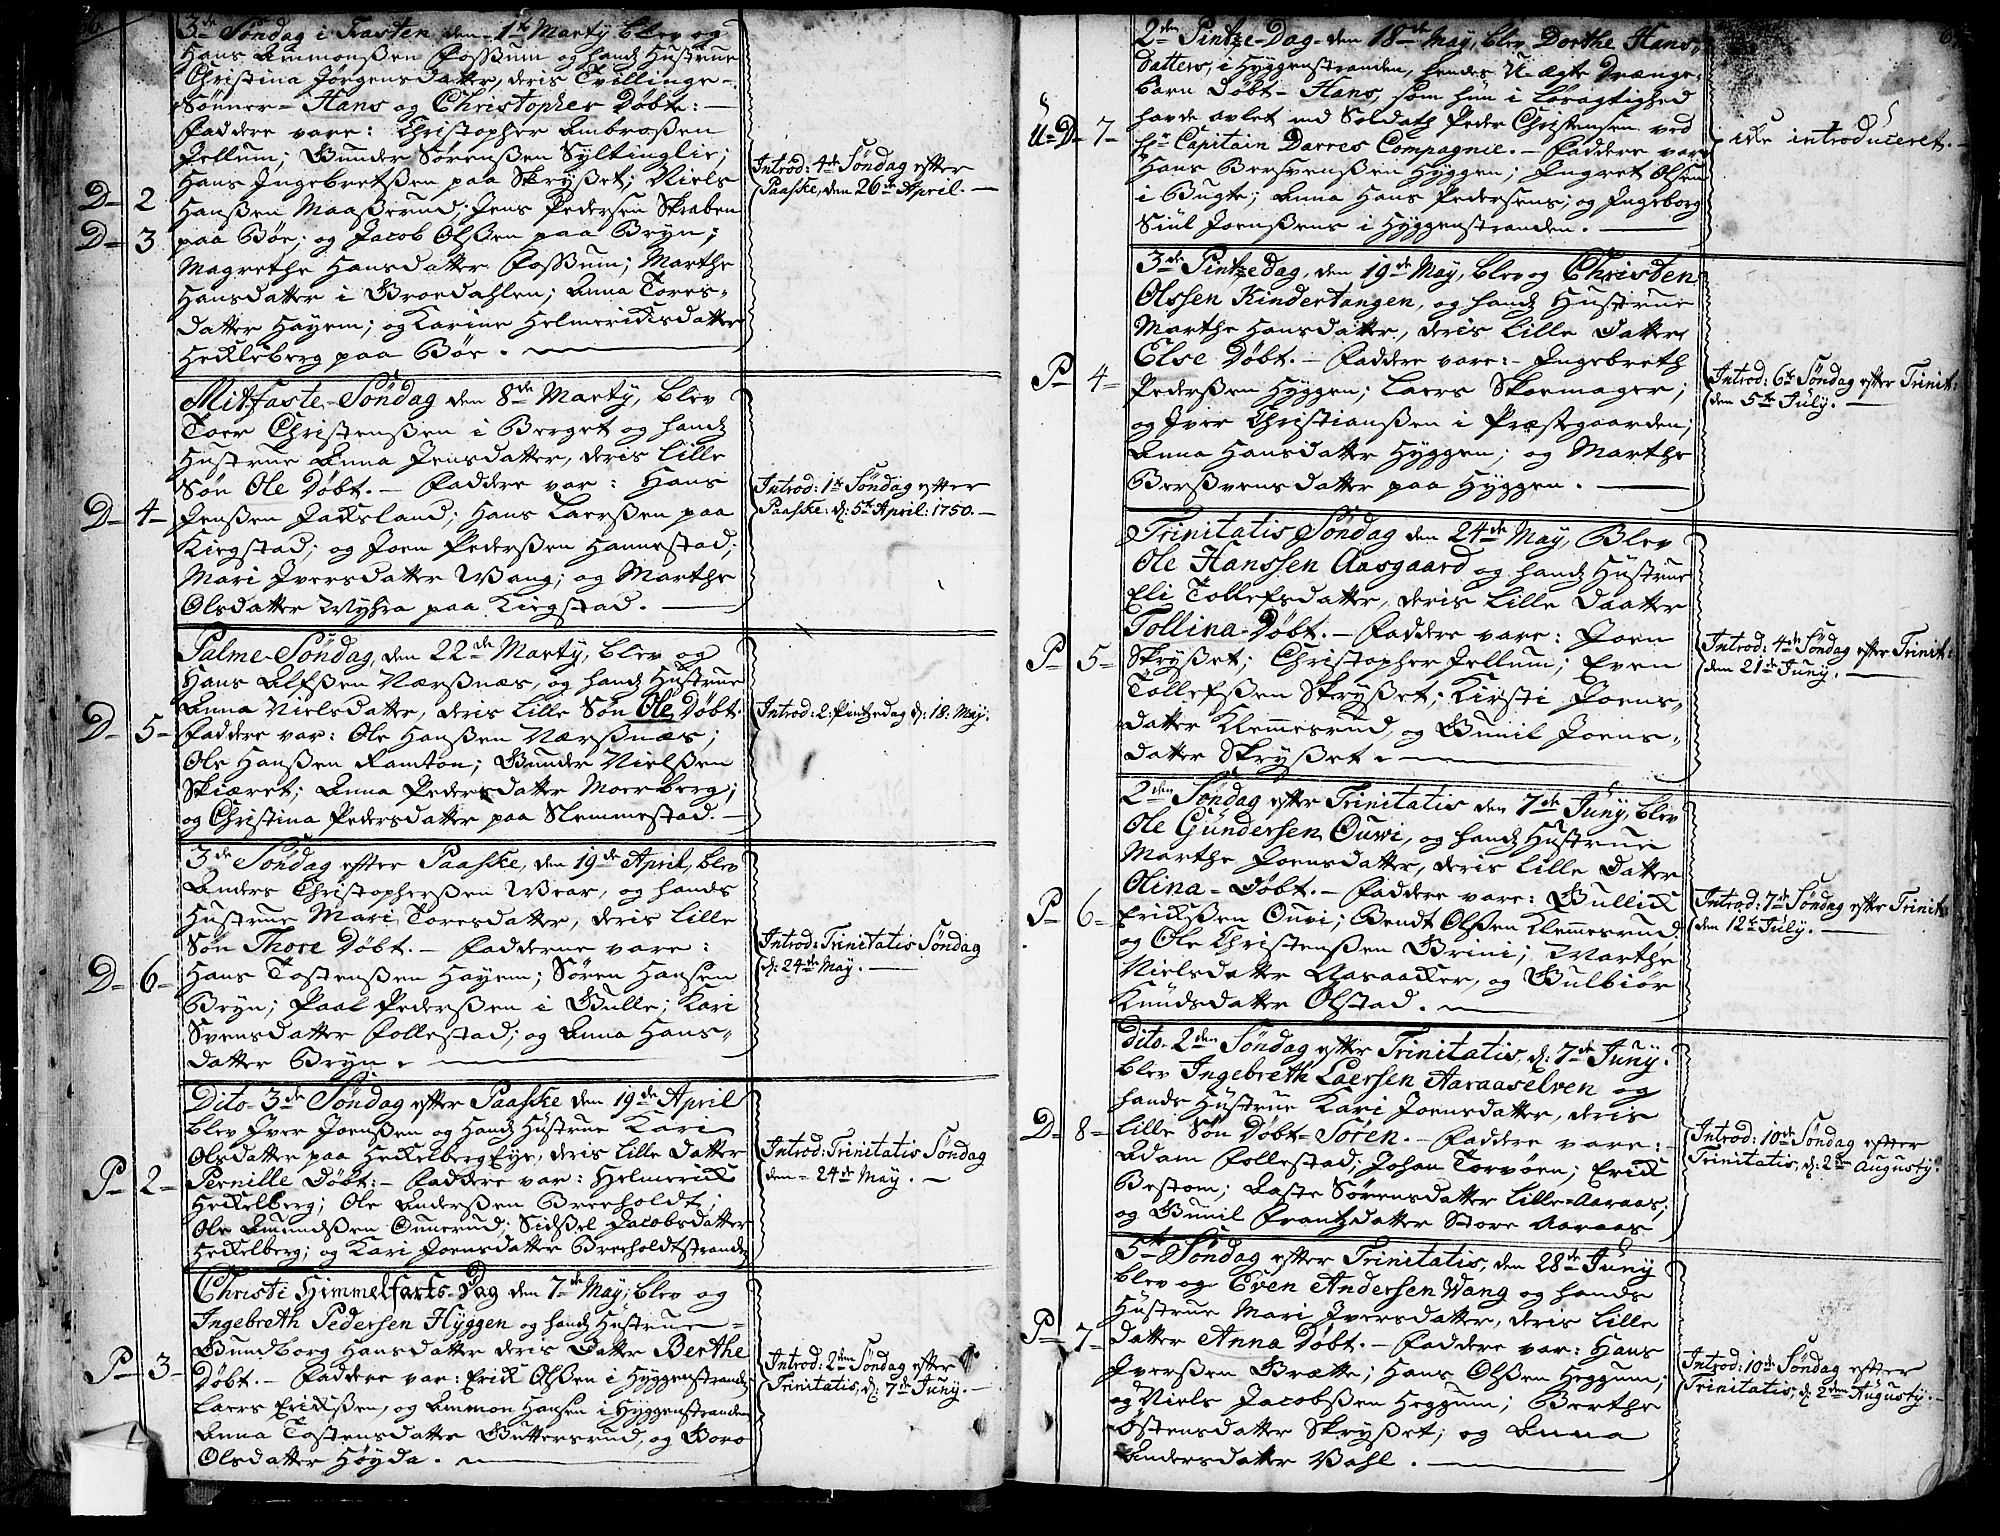 3de Søndag i Fasten den 1te Marty blev og
Hans Ammonsßen Foßum og hands Hustrue
Christina Jørgensdatter, deris Tvillinge-
Sønner- Hans og Christopher Døbt: -
Faddere vare: Christopher Ambroßen
Jellum; Gunder Sørenßen Syltinglie;
Hans Ingebretßen paa Skryßet; Niels
D- 2 Hanßen Maaßerud; Jens Pedersen Skraben
D- 3 paa Böe; og Jacob Olßen paa Bryn;
Magrethe Hansdatter Foßum; Marthe
Hansdatter i Broedahlen; Anna Tores-
datter Hayem; og Karine Helmericksdatter
Heckleberg paa Böe.
Introd: 4de Søndag efter
Paaske, den 26de April. -
Mitfaste-Søndag den 8de Marty, blev
Toer Christenßen i Berget og hands
Hustrue Anna Jensdatter, deris lille
Søn Ole Døbt. - Faddere var: Hans
D- 4- Jenßen Jaksland; Hans Laerßen paa
Kiegstad; og Joen Pederßen Hannestad;
Mari Iversdatter Wang; og Marthe
Olsdatter Wyhra paa Kiegstad.
Introd: 1te Søndag efter
Paaske: d: 5te April: 1750. -
Palme-Søndag, den 22de Marty, blev og
Hans Alfßen Nærßnæs, og hands Hustrue
Anna Nielsdatter, deris lille Søn Ole Døbt.
D- 5- Faddere var: Ole Hanßen Nærßnæs;
Ole Hanßen Ramton; Gunder Nielßen
Skiæret; Anna Pedersdatter Moerberg;
og Christina Pedersdatter paa Slemmestad. -
Introd: 2: Pintzedag d: 18: May.
3de Søndag efter Paaske, den 19de April, blev
Anders Christopherßen Wear, og hands
Hustrue Mari Toresdatter, deris lille
Søn Thore Døbt. - Fadderne vare:
D- 6- Hans Tostenßen Hayem; Søren Hansen
Bryn; Paal Pederßen i Gulle; Kari
Svensdatter Follestad; og Anna Hans-
datter Bryn.
Introd: Trinitatis Søndag
d: 24de May. -
Dito- 3de Søndag efter Paaske den 19de April
blev Iver Joenßen og hands Hustrue Kari
Olsdatter paa Heckelberg Eye, deris lille datter
P- 2- Pernille Døbt:- Faddere var: Helmerick
Heckelberg; Ole Andersßen Breeholdt;
Ole Amundßen Ounerud; Sidßel Jacobsdatter
Heckelberg; og Kari Joensdatter Breeholdtstranden
Introd: Trinitatis Søndag
den- 24de May. -
Christi Himmelfarts-Dag den 7de May, blev og
Ingebreth Pedersen Hyggen og hands Hustrue-
Gundborg Hansdatter deris Datter Berthe
P- 3- Døbt. - Faddere var: Erick Olßen i Hyggenstranden
Laers Erickßen, og Ammon Hansen i Hyggenstranden
Anna Tostensdatter Guttersrud, og Boro
Olsdatter Höyda.
Introd: 2den Søndag efter
Trinitatis, d: 7de Juny. -
2den Pintze-Dag- den 18de May, blev Dorthe Hans-
datters, i Hyggenstranden, hendes U-ægte Drænge-
barn Døbt- Hans, som hun i Løsagtighed
havde avlet med Soldath Peder Christensen ved
U- D- 7- Hr Capitain Darres Compagnie. - Faddere vare
Hans Bersvenßen Hyggen; Ingret Olsen
i Bugte; Anna Hans Pedersens; og Ingeborg
Siul Joenßens i Hyggenstranden.
ikke introduceret. -
3de Pintzedag, den 19de May, blev og Christen
Olssen Kindertangen, og hands Hustrue
Marthe Hansdatter, deris lille Datter
P- 4- Else Døbt. - Faddere vare:- Ingebreth
Pederßen Hyggen; Laers Skoemager;
og Iver Christianßen i Præstgaarden;
Anna Hansdatter Hyggen; og Marthe
Berßvensdatter paa Hyggen.
Introd: 6te Søndag efter Trinit:
den 5te July. -
Trinitatis Søndag den 24de May, Blev
Ole Hanssen Aasgaard og hands Hustrue
Eli Tollefsdatter, deris lille Daatter
Tollina- Døbt. - Faddere vare: Joen
P- 5- Skryßet; Christopher Jellum; Even
Tollefßen Skryßet; Kirsti Joens-
datter Klemmesrud, og Gunil Joens-
datter Skryßet.
Introd: 4de Søndag efter Trinit:
den 21de Juny. -
2den Søndag efter Trinitatis den 7de Juny, blev
Ole Gundersen Ouwi, og hands Hustrue
Marthe Joensdatter, deris lille Datter
Olina- Døbt. - Faddere vare: Gullick
P- 6- Erickßen Ouvi; Bendt Olßen Klemmesrud
og Ole Christenßen Brini; Marthe
Nielsdatter Aasaacker, og Gulbiør
Knudsdatter Olstad.
Introd: 7de Søndag efter Trinit:
den 12te July. -
Dito- 2den Søndag efter Trinitatis, d: 7de Juny.
blev Ingebreth Laersen Aaraaselven og
hands Hustrue Kari Joensdatter, deris
D- 8- lille Søn Døbt- Søren. - Faddere vare:
Adam Follestad; Johan Torvöen; Erick
Bestom; Aaste Sørensdatter Lille-Aaraas;
og Gunil Frantzdatter Store Aaraas
Introd: 10de Søndag efter
Trinitatis, d: 2den Augusty.
5te Søndag efter Trinitatis, den 28de Juny
blev og Even Andersen Wang og hands
Hustrue Mari Iversdatter, deris lille
P- 7- datter Anna Døbt. - Faddere var: Hans
Iverßen Brætte; Hans Olßen Heggum;
og Niels Jacobßen Heggum; Berthe
Östensdatter Skryßet; og Anna
Andersdatter Vahl.
Introd: 10de Søndag efter
Trinitatis, d: 2den Augusty. -